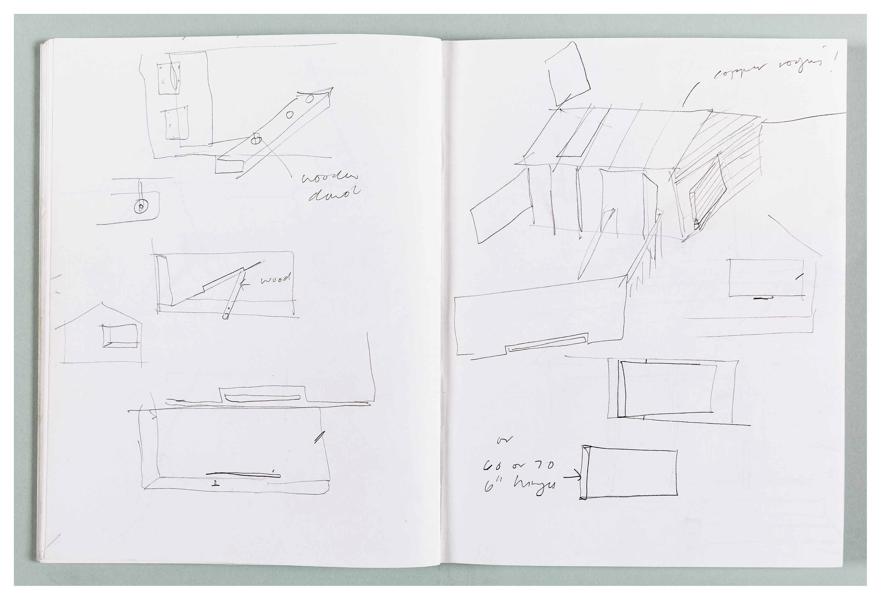 wooden
dowel
wood
copper
or
60 or 70
6" hinges